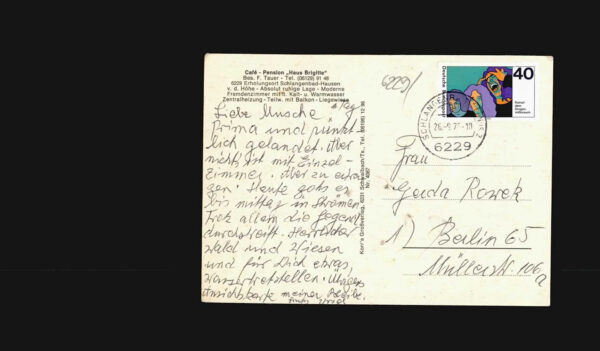 Café - Pension „Haus Brigitte"
Bes. F. Tauer - Tel. (06129) 91 48
6229 Erholungsort Schlangenbad-Hausen
v. d. Höhe - Absolut ruhige Lage - Moderne
Fremdenzimmer mit fl. Kalt- u. Warmwasser
Zentralheizung - Teilw. mit Balkon - Liegewiese
Liebe Musche
Prima und pünkt
lich gelandet. Aber
nicht ist mit Einzel-
Zimmer. Aber zu ertra
gen. Heute goß es
bis mittag in Strömen
Trotz allem die Gegend
durchstreift. Herrlicher
Wald und Wiesen
und für Dich etwas,
Ansichtskarte meiner Bleibe.
Korr's Großverlag, 6231 Schwalbach/Ts., Tel. (06196) 12 98
Nr. 4087
6229/
Deutsche Bundespost
40
Kampf
dem
Drogen-
mißbrauch
6229
Frau
Gerda Rosek
1) Berlin 65
Müllerstr. 106a